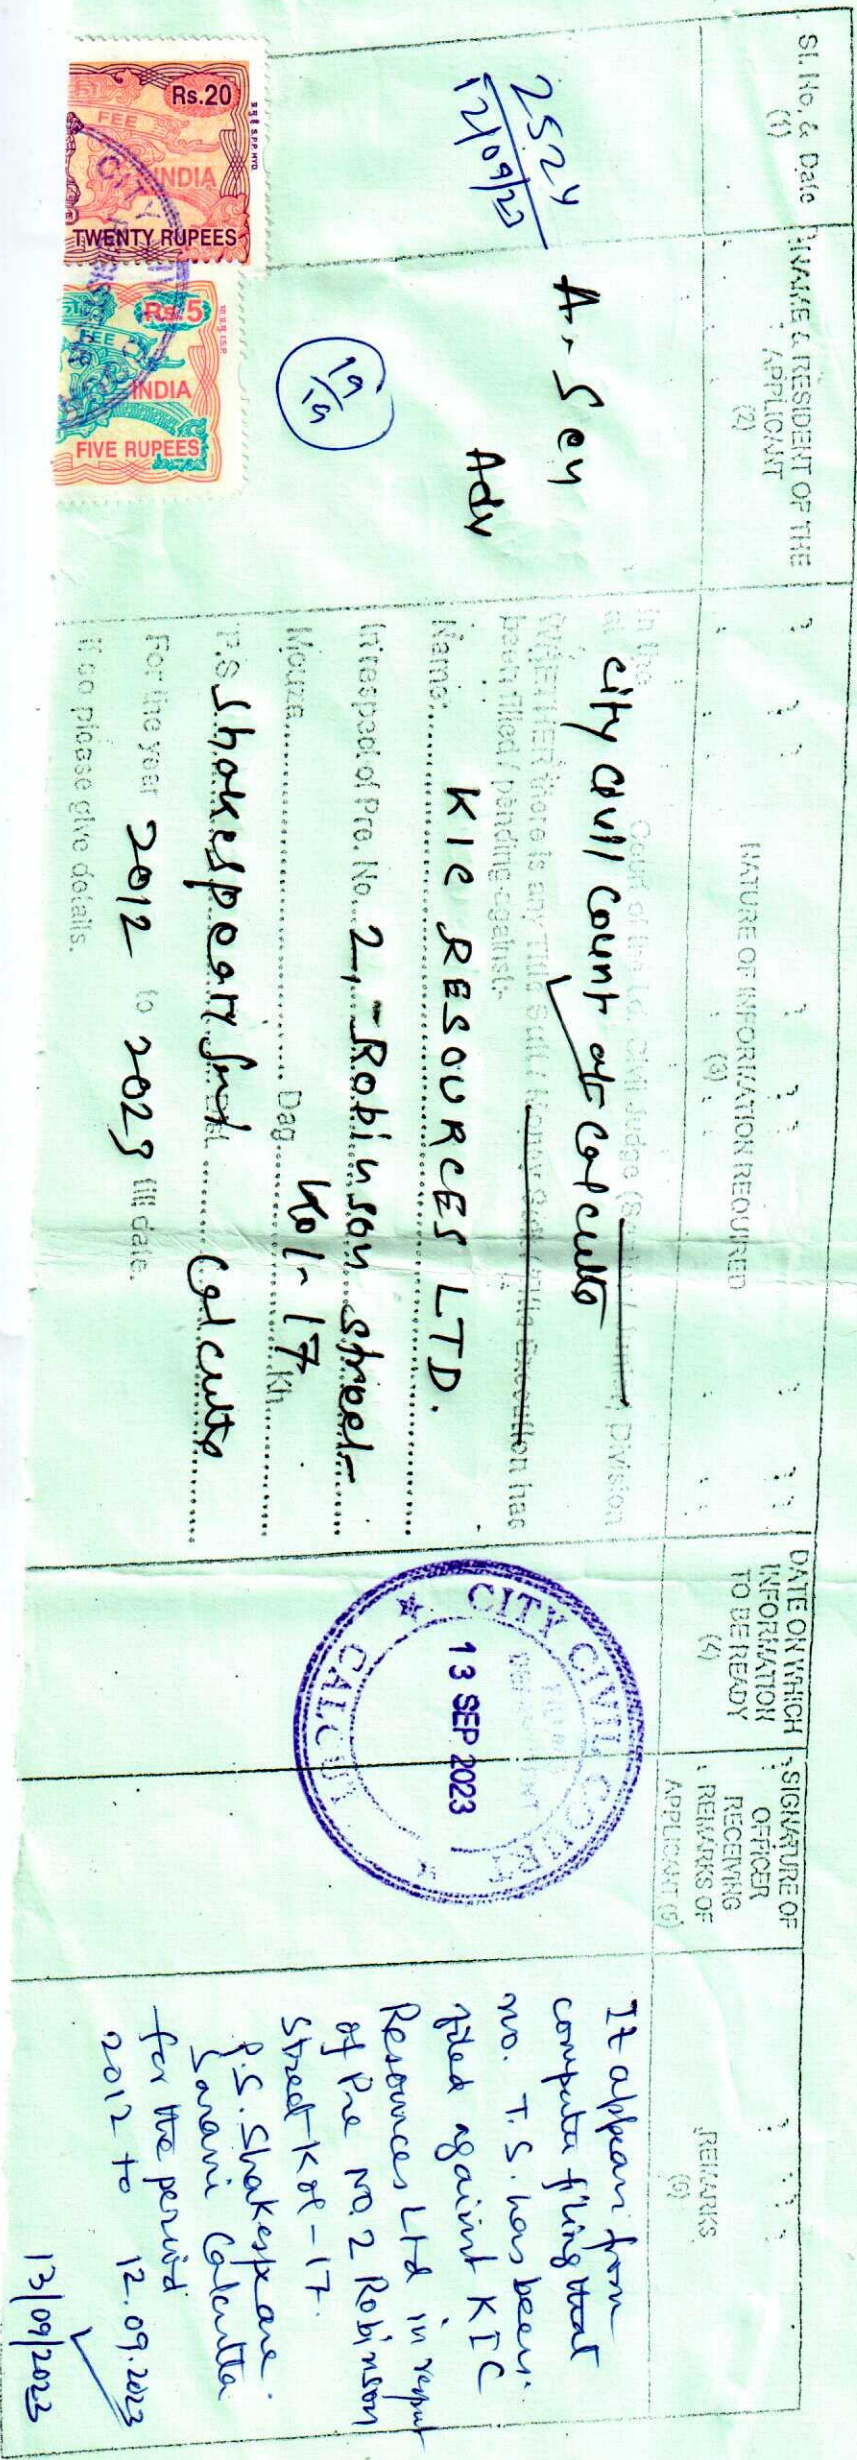 Sl. No. & Date
(1)
NAME & RESIDENT OF THE
APPLICANT
(2)
NATURE OF INFORMATION REQUIRED
(3)
DATE ON WHICH
INFORMATION
TO BE READY
(4)
SIGNATURE OF
OFFICER
RECEIVING
REMARKS OF
APPLICANT (5)
REMARKS
(6)
2524
12/09/23
A. Sen
Adv
19
19
Rs.20
FEE
INDIA
TWENTY RUPEES
Rs.5
FEE
INDIA
FIVE RUPEES
CITY
In the Court of the Ld. Civil Judge Division
at
City Civil Court at Calcutta
WHETHER there is any Title Suit / Money Execution has
been filed / pending against:-
Name: KIC RESOURCES LTD.
In respect of Pre. No. 2, Robinson Street
Mouza Dag Kol-17 Kh
P.S Shakespeare Calcutta
For the year 2012 to 2023 till date.
If so please give details.
CITY CIVIL COURT
13 SEP 2023
It appears from
computer filing that
no. T.S. has been
filed against KIC
Resources Ltd in respect
of Pre No. 2 Robinson
Street Kol-17.
P.S. Shakespeare
Sarani Calcutta
for the period
2012 to 12.09.2023
13/09/2023